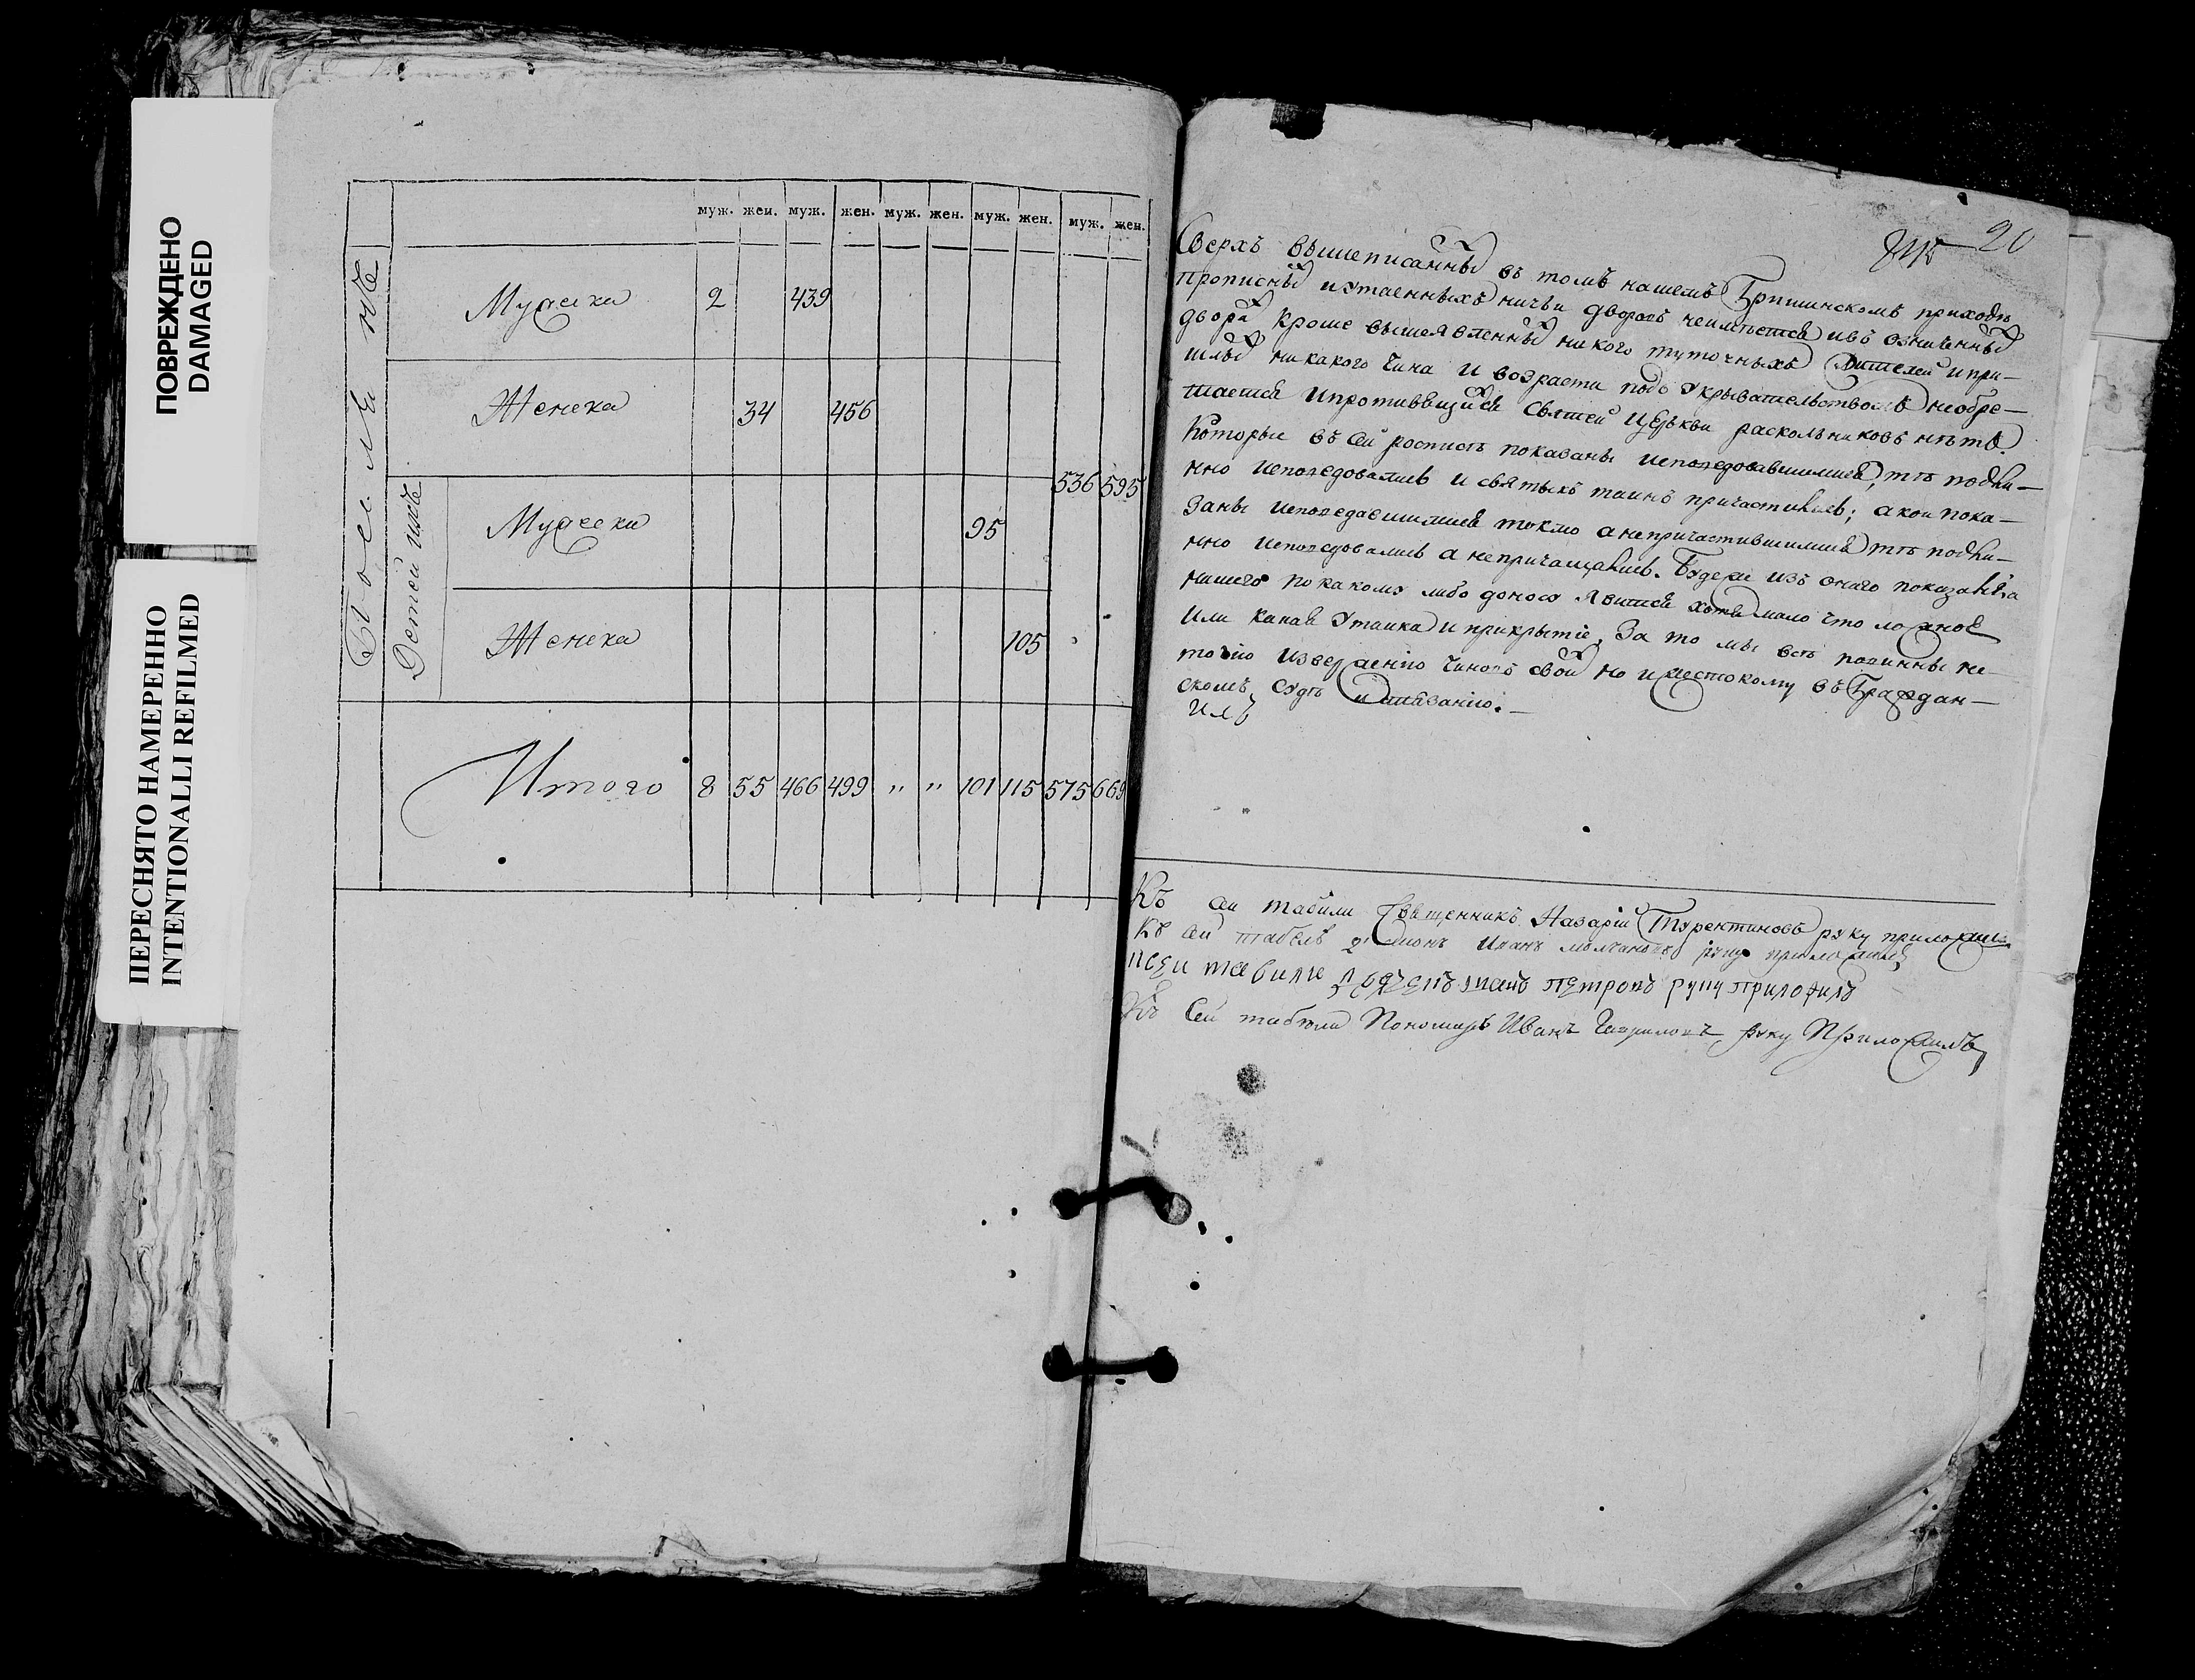 ПОВРЕЖДЕНО
DAMAGED
ПЕРЕСНЯТО НАМЕРЕННО
INTENTIONALLI REFILMED
муж. жен. муж. жен. муж. жен. муж. жен. муж. жен.
Мужска 2 439
Женска 34 456
536 595
Детей ихъ
Мужска 95
Женска 105
Итого 8 55 466 499 " " 101 115 575 669
20
Сверхъ вышеписанных въ томъ нашемъ приходѣ
прописных и утаенныхъ ничьи дворовъ неимѣется ивъ
двора кроме вышеявленных никого туточныхъ жителей и при-
шлых никакого чина и возраста подъ укрывательствомъ необре-
тается ипротивящихся святей церькви раскольниковъ нѣтъ.
Которые въ сей росписѣ показаны исповедовавшимися, тѣ подли-
нно исповедовались и святыхъ таинъ причастились; а кои пока-
заны исповедавшимися токмо а непричастившимися тѣ подли-
нно исповедовались а непричащались. Будеже изъ онаго показанія
нашего по какому либо доносу явится хотя мало что ложное
или какая утаика и прикрытіе, За то мы всѣ повинны не
точїю извержению чиновъ свои но и жестокому въ Граждан-
скомъ судѣ
Къ сей табели Священникъ Назарій Турентиновъ руку приложилъ
Къ сей табелѣ Иванъ руку приложилъ
петровъ руку приложилъ
Къ Сей табели Пономарь Иванъ Гавриловъ руку Приложилъ